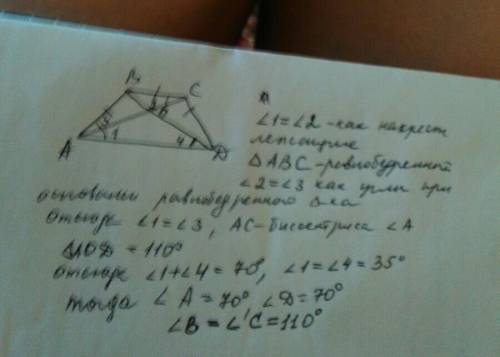 B
C
3
2
6
A
1
4
D
∠1=∠2 -как накрест
лежащие
△ABC-равнобедренный
∠2=∠3 как углы при
основании равнобедренного △ка
отсюда ∠1=∠3, AC-биссектриса ∠A
∠AOD=110°
отсюда ∠1+∠4=70°, ∠1=∠4=35°
тогда ∠A=70°, ∠D=70°
∠B=∠C=110°